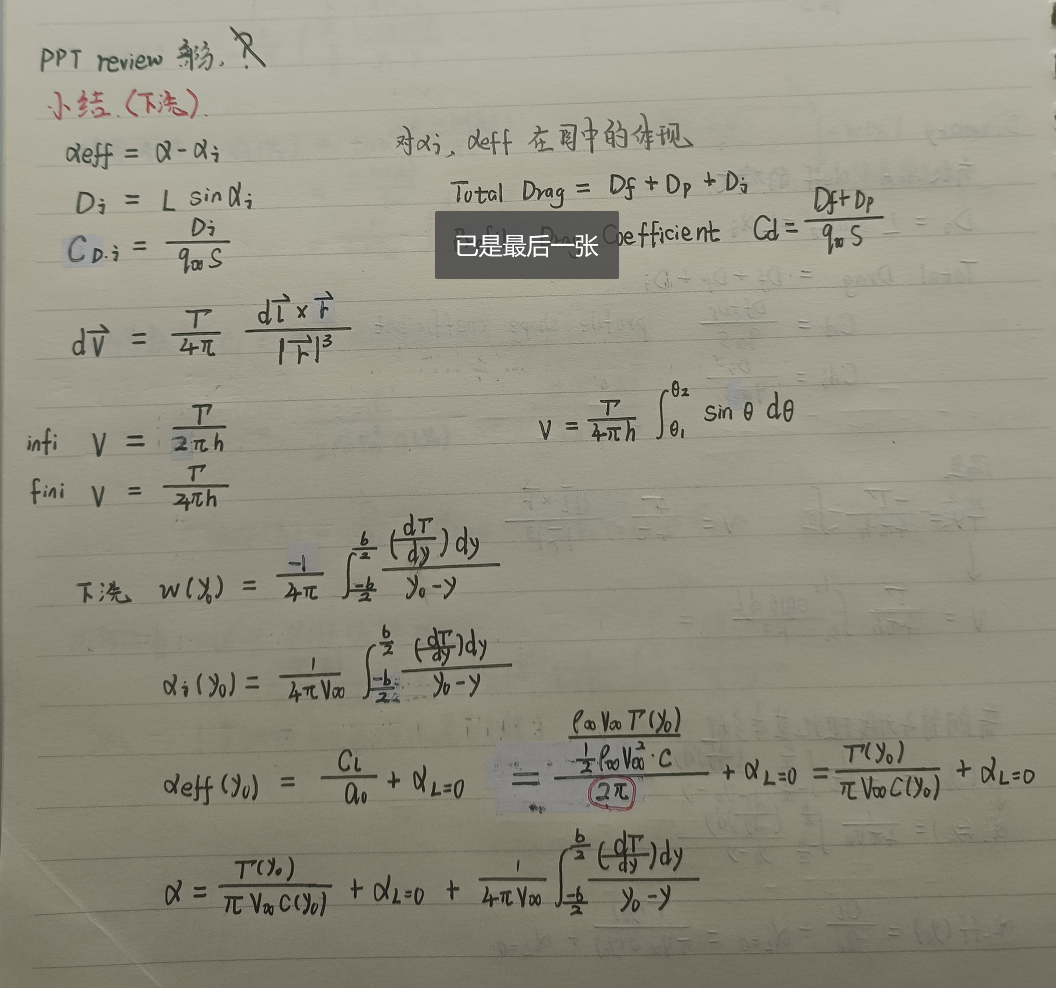 PPT review 部分.
小结.(下洗).
αeff = α-αi
对αi, αeff 在图中的体现
Di = L sinαi
Total Drag = Df + Dp + Di
C D.i = Di / q∞ S
已是最后一张
Coefficient Cd = Df+Dp / q∞ S
dV⃗ = Γ/4π dl⃗ × r⃗ / |r⃗|³
infi V = Γ/2πh
V = Γ/4πh ∫θ₁^θ₂ sin θ dθ
fini V = Γ/4πh
下洗 w(y₀) = -1/4π ∫_{-b/2}^{b/2} (dΓ/dy) dy / y₀-y
αi(y₀) = 1/4πV∞ ∫_{-b/2}^{b/2} (dΓ/dy)dy / y₀-y
αeff(y₀) = CL/a₀ + αL=0 = (ρ∞V∞Γ(y₀) / ½ρ∞V∞²·C) / 2π + αL=0 = Γ(y₀)/πV∞C(y₀) + αL=0
α = Γ(y₀)/πV∞C(y₀) + αL=0 + 1/4πV∞ ∫_{-b/2}^{b/2} (dΓ/dy)dy / y₀-y